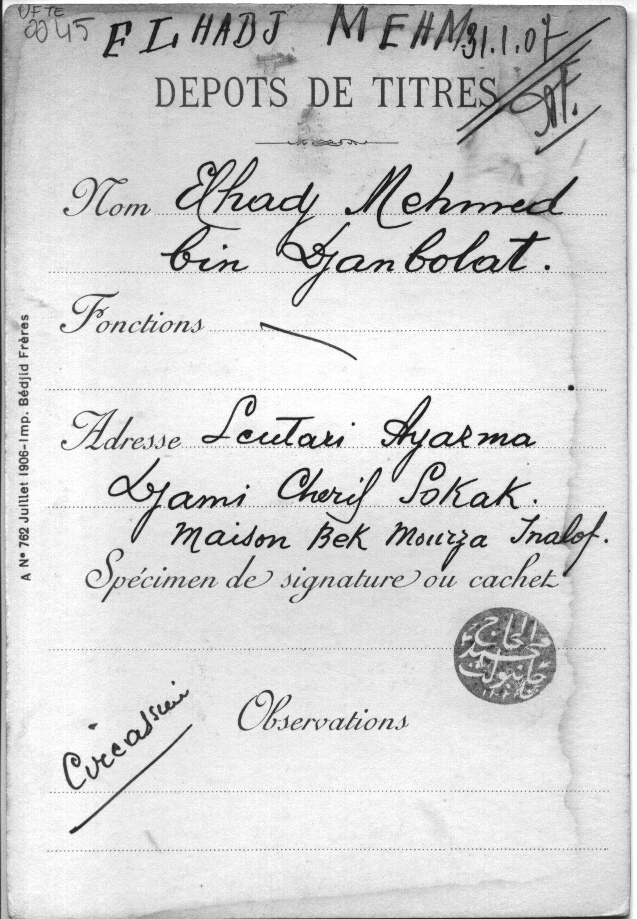 UFTE
2045 ELHADJ MEHM 31.1.07
DEPOTS DE TITRES
Nom Elhadj Mehmed
bin Djanbolat.
Fonctions
Adresse Scutari Ayazma
Djami Cherif Sokak.
Maison Bek Mourza Inalof.
Spécimen de signature ou cachet
الحاج
محمد
جانبولات
Observations
Circassien
A Nº 762 Juillet 1906-Imp. Bédjid Frères